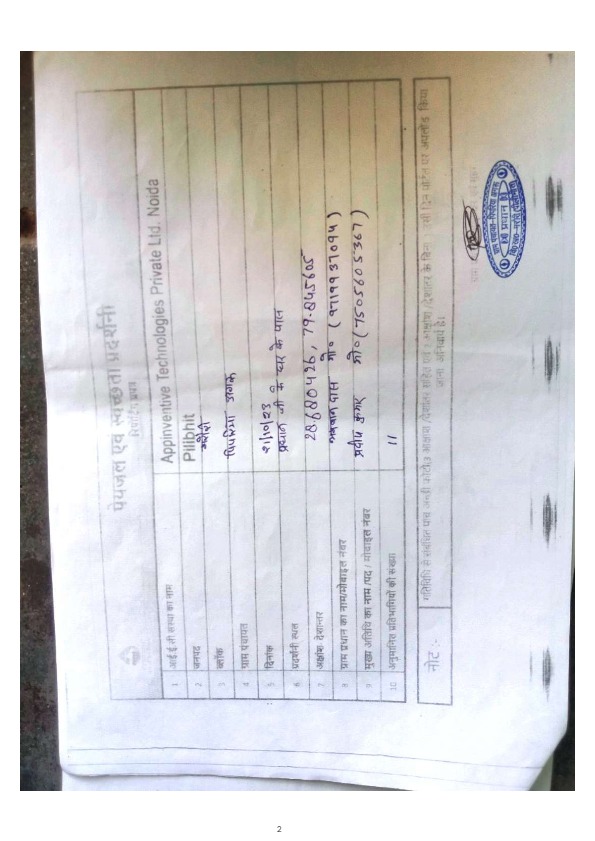 पेयजल एवं स्वच्छता प्रदर्शनी
रिपोर्टिंग प्रपत्र
1 आई ई सी संस्था का नाम Appinventive Technologies Private Ltd. Noida
2 जनपद Pilibhit
3 ब्लॉक मरौरी
4 ग्राम पंचायत पिपरिया अगरू
5 दिनांक 21/10/23
6 प्रदर्शनी स्थल प्रधान जी के घर के पास
7 अक्षांश देशान्तर 28.680426, 79.845605
8 ग्राम प्रधान का नाम/मोबाइल नंबर भगवान दास मो० (9719937094)
9 मुख्य अतिथि का नाम /पद / मोबाइल नंबर प्रदीप कुमार मो० (7505605367)
10 अनुमानित प्रतिभागियों की संख्या 11
नोट :- गतिविधि से संबंधित पांच अच्छी फोटोज अक्षांश /देशान्तर सहित एवं अक्षांश /देशान्तर के बिना उसी दिन पोर्टल पर अपलोड किया
जाना अनिवार्य है।
2